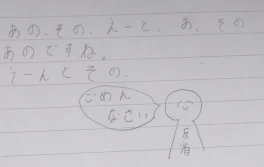 あの、その、えーと、あ、その
あのですね。
うーんとその、
ごめん
なさい
反省